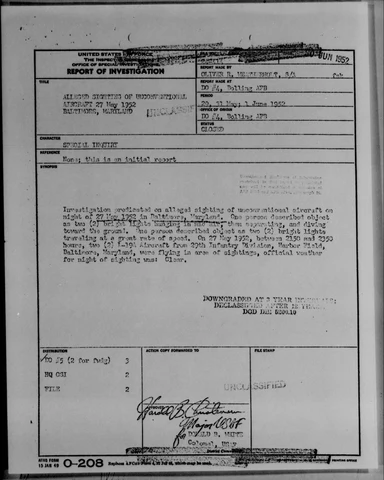 UNITED STATES AIR FORCE
THE INSPECTOR GENERAL
OFFICE OF SPECIAL INVESTIGATIONS
REPORT OF INVESTIGATION
JUN 1952
REPORT MADE BY
OLIVER R.
TITLE
ALLEGED SIGHTING OF UNCONVENTIONAL
AIRCRAFT 27 May 1952
BALTIMORE, MARYLAND
UNCLASSIFIED
REPORT MADE AT
DO #4, Bolling AFB
PERIOD
29, 31 May; 1 June 1952
OFFICE OF ORIGIN
DO #4, Bolling AFB
STATUS
CLOSED
CHARACTER
SPECIAL INQUIRY
REFERENCE
None; this is an initial report
SYNOPSIS
Investigation predicated on alleged sighting of unconventional aircraft on
night of 27 May 1952 in Baltimore, Maryland. One person described object
as two (2) bright lights hanging in the air, then separating, and diving
toward the ground. One person described object as two (2) bright lights
traveling at a great rate of speed. On 27 May 1952, between 2150 and 2350
hours, two (2) Aircraft from 29th Infantry Division, Harbor Field,
Baltimore, Maryland, were flying in area of sightings, official weather
for night of sighting was: Clear.
DOWNGRADED AT 3 YEAR INTERVALS;
DECLASSIFIED AFTER 12 YEARS.
DOD DIR 5200.10
DISTRIBUTION
ACTION COPY FORWARDED TO
FILE STAMP
DO #5 (2 for fwdg) 3
HQ OSI 2
FILE 2
UNCLASSIFIED
APPROVED
Major USAF
for DONALD L.
Colonel, USAF
AFHQ FORM
15 JAN 49
O-208